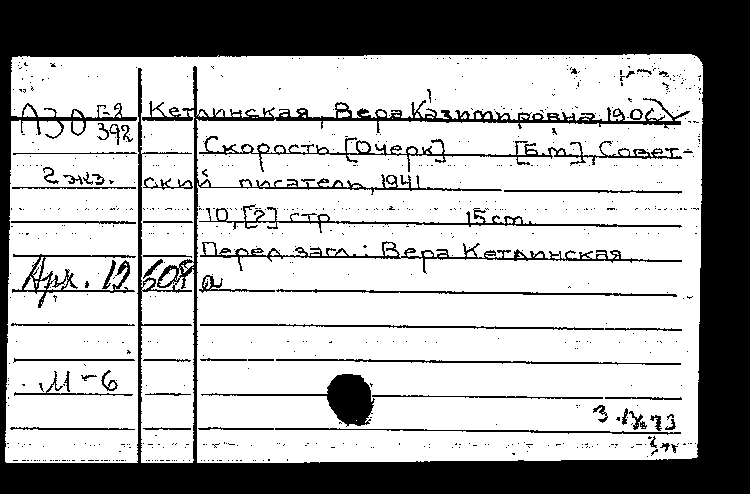 ЛЗО Г-2 Кетлинская, Вера Казимировна, 1906
392
Скорость [Очерк] [Б.м.], Совет-
2 экз. ский писатель, 1941.
10, [2] стр. 15 cm.
Перед загл.: Вера Кетлинская.
Арх. 12 608 а
М-6